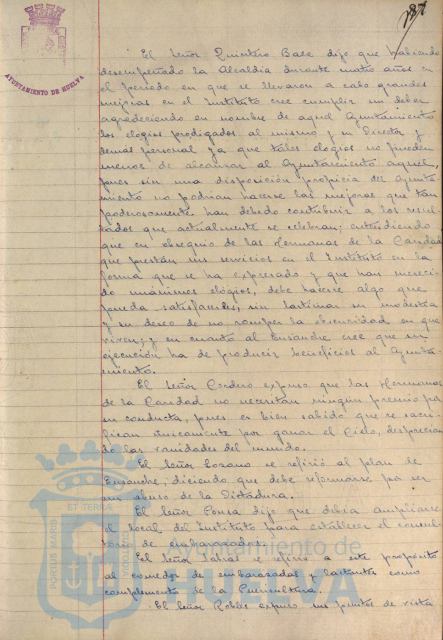 187
AYUNTAMIENTO DE HUELVA
El Señor Quintero Baez dijo que habiendo
desempeñado la Alcaldía durante cuatro años en
el período en que se llevaron a cabo grandes
mejoras en el Instituto cree cumplir un deber
agradeciendo en nombre de aquel Ayuntamiento
los elogios prodigados al mismo y su Director y
demas personal ya que tales elogios no pueden
menos de alcanzar al Ayuntamiento aquel,
pues sin una disposición propicia del Ayunta-
miento no podrían hacerse las mejoras que tan
poderosamente han debido contribuir a los resul-
tados que actualmente se celebran; entendiendo
que en obsequio de las Hermanas de la Caridad
que prestan sus servicios en el Instituto en la
forma que se ha expresado y que han mereci-
do unánimes elogios, debe hacerse algo que
pueda satisfacerles, sin lastimar su modestia
y su deseo de no romper la obscuridad en que
viven; y en cuanto al Ensanche cree que su
ejecución ha de producir beneficios al Ayunta-
miento.
El Señor Cordero expuso que las Hermanas
de la Caridad no necesitan ningun premio por
su conducta, pues es bien sabido que se sacri-
fican unicamente por ganar el Cielo, desprecian-
do las vanidades del mundo.
El Señor Lozano se refirió al plan de
Ensanche, diciendo que debe reformarse por ser
un abuso de la Dictadura.
El Señor Ponsa dijo que debía ampliarse
el local del Instituto para establecer el consul-
torio de embarazadas.
El Señor Sabras se refiere a este propósito
al comedor de embarazadas y lactantes como
complemento de la Puericultura.
El Señor Robles expuso sus puntos de vista
PORTUS MARIS
ET TERRAE
Ayuntamiento de
HUELVA